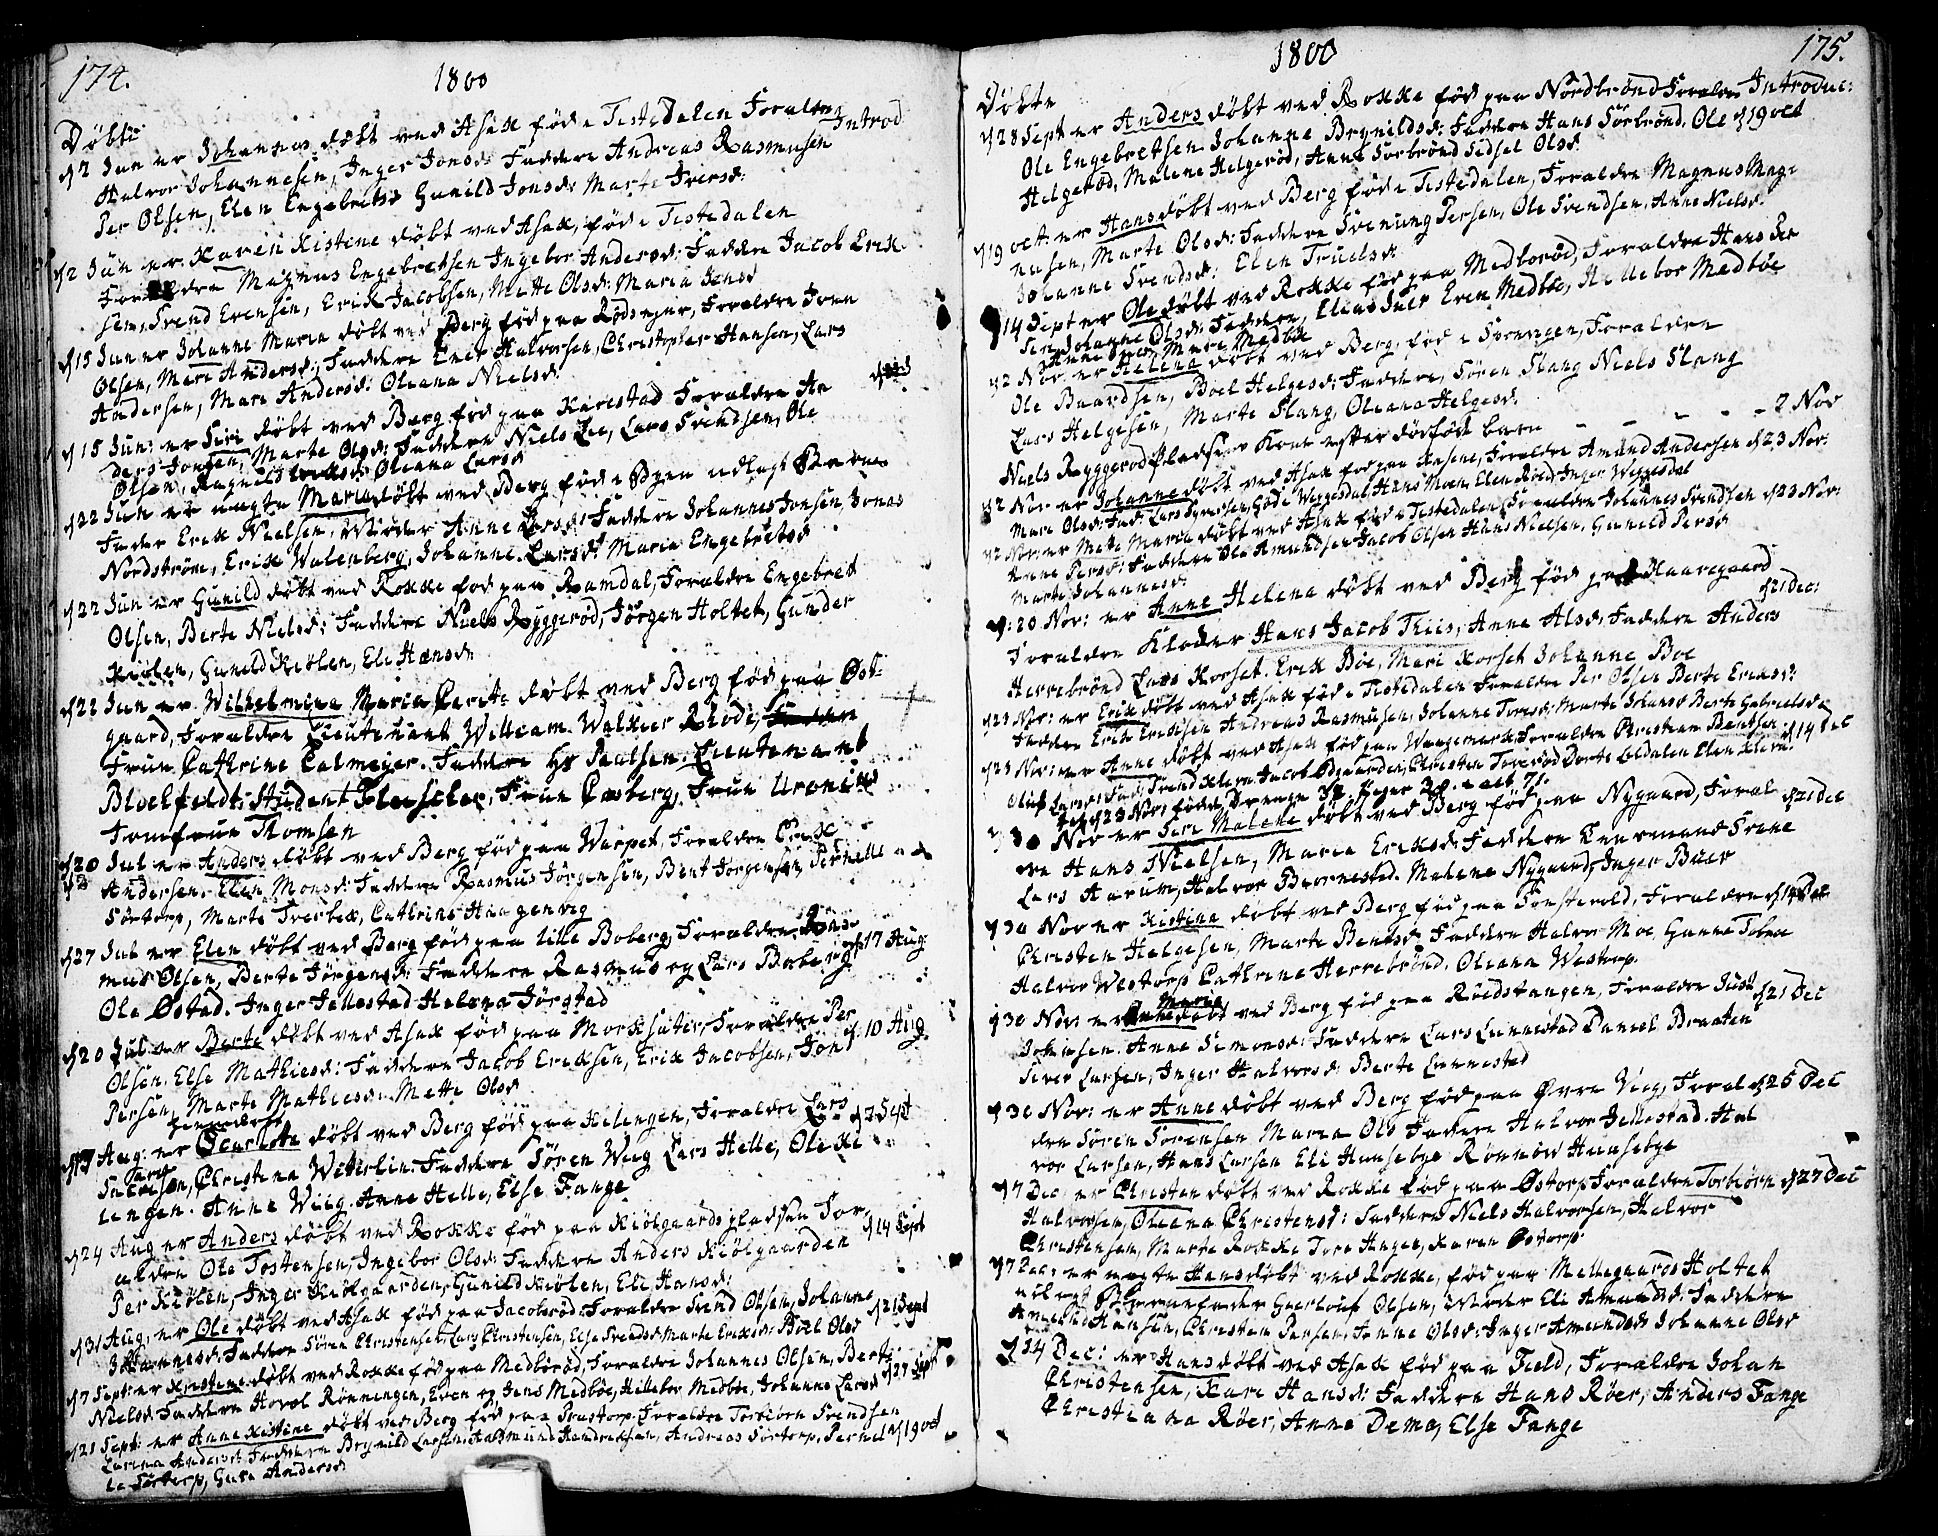 174.
1800
Døbte
Introd
d 2 Jun er Johannes døbt ved Asak fød i Tistedalen Forældre
Halvor Johannesen, Inger Jonsd: Faddere Andreas Rasmusen
Per Olsen, Elen Engebretsd Gunild Jonsd: Marte Iversd:
d 2 Jun er Karen Kistine døbt ved Asak, fød i Tistedalen
Forældre Magnus Engebretsen Ingebor Andersd: Faddere Jacob Erik
sen, Svend Evensen, Erik Jacobsen, Mette Olsd: Maria Jensd
d 15 Jun er Johanne Maria døbt ved Berg fød paa Rødseier, Forældre Iver
Olsen, Mari Andersd: Faddere Einer Halvorsen, Christopher Hansen, Lars
Andersen, Mari Andersd: Oleana Nielsd:
d 15 Jun: er Siri døbt ved Berg fød paa Karestad Forældre An
ders Jonsen, Marte Olsd: Faddere Niels Lie, Lars Svendsen, Ole
Olsen, Ragnild Eriksd: Oleana Larsd
d 22 Jun er uægte Maria døbt ved Berg fød i Byen udlagt Barne
Fader Erik Nielsen, Moder Anne Larsd: Faddere Johannes Jonsen, Jonas
Nordstrøm, Erik Walenberg, Johanne Larsd: Maria Engebretsd
d 22 Jun er Gunild døbt ved Rokke fød paa Ramdal, Forældre Engebret
Olsen, Berte Nielsd: Faddere Niels Ryggerød, Jørgen Holtet, Gunder
Kiølen, Gunild Kiølen, Eli Hansd:
d 22 Jun er Wilhelmina Maria Cerite døbt ved Berg fød paa Øst
gaard, Forældre Lieutenant William Walker Rhode,
Frue Cathrine Calmejer. Faddere Hr Paulsen, Lieutenant
Blochfeldt, Student Fleischer, Frue Carberg, Frue Uronius
Jomfrue Thomsen
d 20 Jul er Anders døbt ved Berg fød paa Warpet, Forældre Erik
Andersen, Elen Monsd: Faddere Rasmus Jørgensen, Bent Jørgensen, Pernille
Sørtorp, Marte Tverbek, Cathrine Haagenveg
d 27 Jul er Elen døbt ved Berg fød paa lille Boberg, Forældre Ras
mus Olsen, Berte Jørgensd: Faddere Rasmus og Lars Boberg, d 17 Aug
Ole Østad. Inger Jellestad Helena Jørstad
d 20 Jul er Berte døbt ved Asak fød paa Morksæter, Forældre Per
Olsen. Else Mathiesd: Faddere Jacob Eriksen, Erik Jacobsen, Jon d: 10 Aug.
Persen, Marte Mathiesd: Mette Olsd
d 17 Aug: er Ocarlota døbt ved Berg fød paa Kilengen, Forældre Lars d 7 Sept
Christina Witterlin. Faddere Søren Wiig Lars Helle, Ole Ki
lengen. Anne Wiig. Anne Helle, Else Fange
d 24 Aug er Anders døbt ved Rokke fød paa Kiølgaards pladsen For,
ældre Ole Tostensen, Ingebor Olsd: Faddere Anders Kiølgaarden d 14 Sept
Per Kiølen, Inger Kiølgaarden, Gunild Kiølen, Eli Hansd:
d 31 Aug: er Ole døbt ved Asak fød paa Jacobsrød, Forældre Svend Olsen, Johanne d 21 Sept
Johannesd: Faddere Søren Christensen, Lars Christensen, Else Svendsd: Marte Eriksd: Boel Olsd
d 7 Sept: er Kristine døbt ved Rokke fød paa Medbørød, Forældre Johannes Olsen, Berte
Nielsd: Faddere Horol Rønningen, Even og Jens Medbøe, Hillebor Medbøe, Johanne Larsd d 27 Sept
d 21 Sept: er Anne Kistine døbt ved Berg fød paa Poustorp, Forældre Torbiørn Svendsen
Larina Andersd: Faddere Brynild Larsen, Aasmund Hendriksen, Andreas Sørtorp, Pernil d 19 oct
le Sørtorp, Guro Andersd
1800
175.
Døbte
Introduc:
d 28 Sept er Anders døbt ved Rokke fød paa Nordbrønd Forældre
Ole Engebretsen Johanne Brynildsd: Faddere Hans Sørbrønd, Ole d 19 oct
Helgerød, Malene Helgerød, Anne Sørbrønd Sidsel Olsd:
d 19 oct: er Hans døbt ved Berg fød i Tistedalen, Forældre Magnus Mag
nusen, Marte Olsd: Faddere Svenung Persen, Ole Svendsen, Anne Nielsd:
Johanne Svendsd: Elen Truelsd:
d 14 Sept er Ole døbt ved Rokke fød paa Medborød, Forældre Hans Per
sen, Johanne Olsd: Faddere, Elias Juel Even Medbøe, Hillebor Medbøe
Mari Medbøe
d 2 Nov er Helena døbt ved Berg, fød i Svingen, Forældre
Ole Baardsen, Boel Helgesd: Faddere, Søren Stang Niels Stang
Lars Helgesen, Marte Stang, Oleana Helgesd.
Niels Ryggerød Pladsens Kone efter dødfødt barn - - - - 2 Nov
d 2 Nov: er Johanne døbt ved Asak fød paa Ansene, Forældre Amund Andersen d 23 Nov:
Mari Olsd: Fad: Lars Syversen, Gode Weggesdal, Hans Moen, Elen Røed, Inger Weggesdal
d 2 Nov: er Mette Maria døbt ved Asak fød i Tistedalen, Forældre Johannes Svendsen d 23 Nov:
Anne Persd: Faddere Ole Amundsen Jacob Olsen Hans Nielsen, Gunild Persd
Marte Johannesd:
d: 20 Nov: er Anne Helena døbt ved Berg fød paa Haaregaard d 21 Dec:
Forældre Kloker Hans Jacob Thiis, Anne Alsd: Faddere Anders
Herrebrønd Lars Korset. Erik Bøe, Mari Korset Johanne Boe
d 23 Nov: er Erik døbt ved Asak fød i Tistedalen Forældre Per Olsen Berte Eriksd:
Faddere Erik Eriksen Andreas Rasmusen, Johanne Toresd: Marte Johansd Berte Gabrielsd:
d 23 Nov: er Anne døbt ved Asak fød paa Wangemark, Forældre Christian Bentsen d 14 Dec
Oliv Larsd: Fad: Svend Klern, Jacob Ødegaarden, Christen Torerød Dorte Leldalen Elen Klern.
d 30 Nov er Siri Malene døbt ved Berg fød paa Nygaard, Foræl d 21 Dec
dre Hans Nielsen, Maria Eriksd: Faddere Lensmand Frene
Lars Aarum, Halvor Biørnestad. Malene Nygaard, Inger Buer
d 30 Nov er Kistina døbt ved Berg fød paa Tønsterød, Forældre d 14 Dec
Christen Helgesen, Marte Bentsd: Faddere Halvor Moe Gunne Tobea
Halvor Westorp Cathrina Herrebrønd. Oleana Westorp.
d 30 Nov: er Anne Maria døbt ved Berg fød paa Røedstangen, Forældre Just d 21 Dec
Johnsen. Anne Simonsd: Faddere Lars Lunnestad Daniel Braaten
Siver Larsen, Inger Halvorsd: Berte Lunnestad
d 30 Nov: er Anne døbt ved Berg fød paa Øvre Viig, Foræl d 26 Dec
dre Søren Sørensen Maria Olsd Faddere Halvor Jellestad. Hal
vor Larsen, Hans Larsen Eli Huusebye Rønnow Huusebye
d 7 Dec: er Christen døbt ved Rokke fød paa Østorp, Forældre Torbiørn d 27 Dec
Halvorsen, Oleana Christensd: Faddere Niels Halvorsen, Halvor
Christensen, Marte Rokke Tore Hagen, Karen Østorp.
d 7 Dec: er uægte Hans døbt ved Rokke, fød paa Mellegaards Holtet
udlagt Barnefader Guerlouf Olsen, Moder Eli Amundsd: Faddere
Amund Hansen, Christen Persen, Janne Olsd: Inger Amundsd: Johanne Olsd
d 14 Dec: er Hans døbt ved Asak fød paa Field, Forældre Johan
Christensen, Kari Hansd: Faddere Hans Røer, Anders Fange
Christiana Røer, Anne Demo, Else Fange